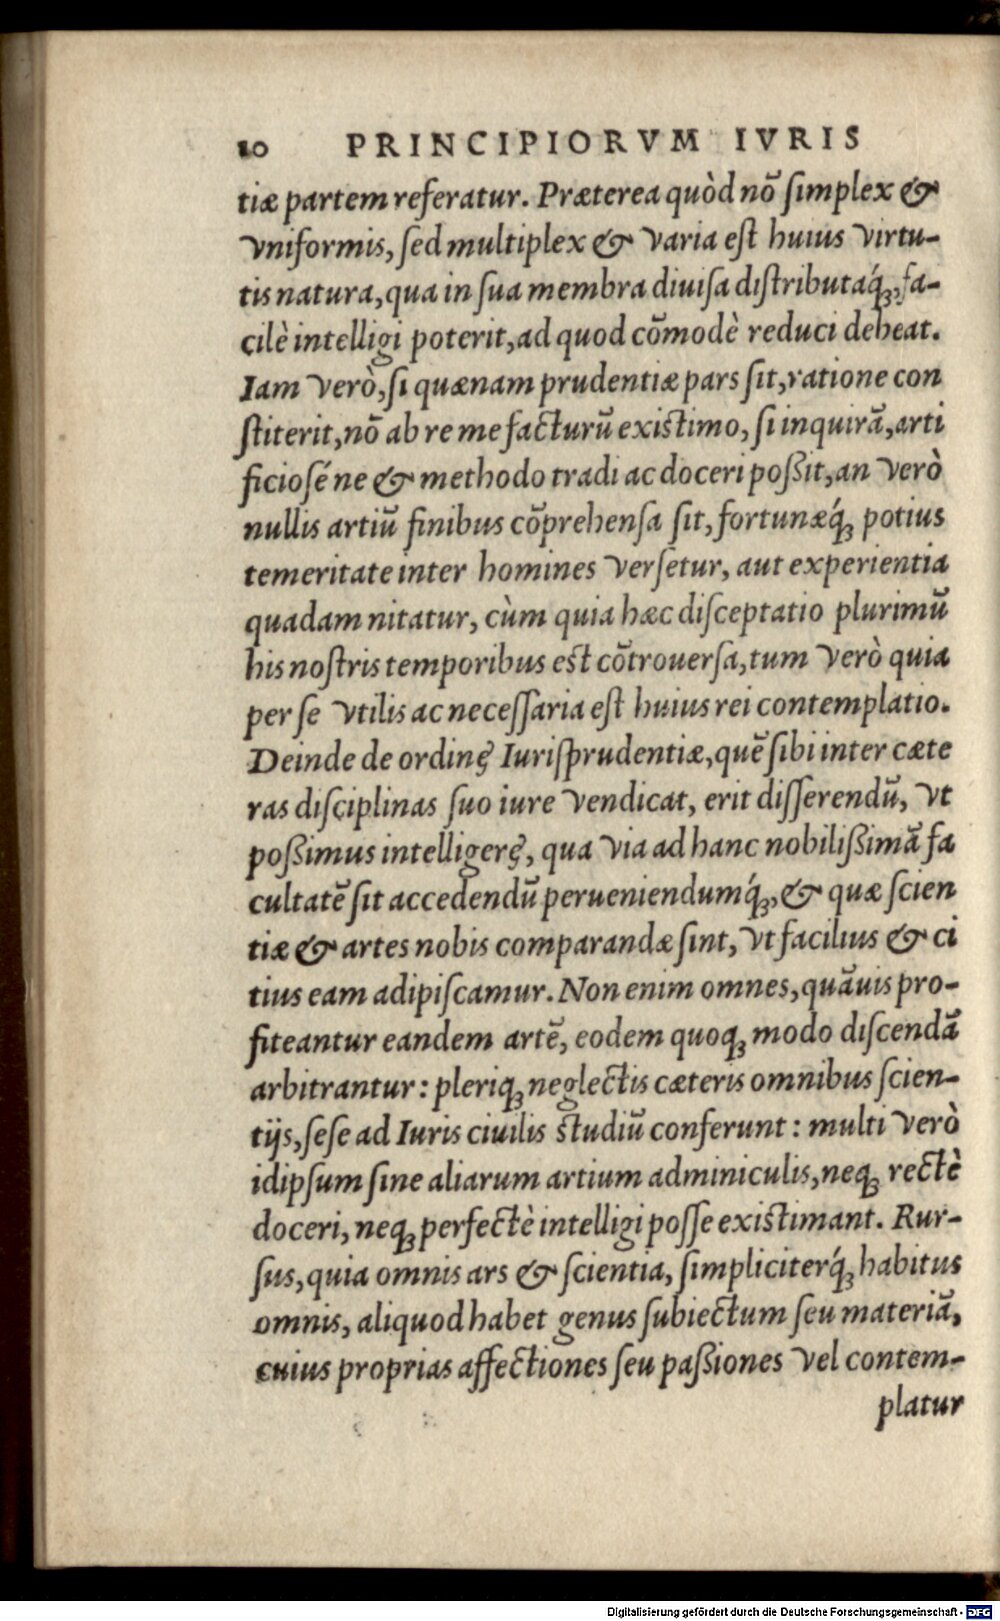 10 PRINCIPIORVM IVRIS
tiæ partem referatur. Præterea quòd nõ ſimplex &
vniformis, ſed multiplex & varia eſt huius virtu-
tis natura, qua in ſua membra diuiſa diſtributaq́ꝫ, fa-
cilè intelligi poterit, ad quod cõmodè reduci debeat.
Iam verò, ſi quænam prudentiæ pars ſit, ratione con
ſtiterit, nõ ab re me facturũ existimo, ſi inquirã, arti
ficioſé ne & methodo tradi ac doceri poßit, an verò
nullis artiũ finibus cõprehenſa ſit, fortunæq́ꝫ potius
temeritate inter homines verſetur, aut experientia
quadam nitatur, cùm quia hæc diſceptatio plurimũ
his noſtris temporibus est cõtrouerſa, tum verò quia
per ſe vtilis ac neceſſaria eſt huius rei contemplatio.
Deinde de ordine Iuriſprudentiæ, quẽ ſibi inter cæte
ras diſciplinas ſuo iure vendicat, erit diſſerendũ, vt
poßimus intelligere, qua via ad hanc nobilißimã fa
cultatẽ ſit accedendũ perueniendumq́ꝫ, & quæ ſcien
tiæ & artes nobis comparandæ ſint, vt facilius & ci
tius eam adipiſcamur. Non enim omnes, quãuis pro-
fiteantur eandem artẽ, eodem quoqꝫ modo diſcendã
arbitrantur: pleriqꝫ neglectis cæteris omnibus ſcien-
tijs, ſeſe ad Iuris ciuilis studiũ conferunt: multi verò
idipſum ſine aliarum artium adminiculis, neqꝫ rectè
doceri, neqꝫ perfectè intelligi poſſe existimant. Rur-
ſus, quia omnis ars & ſcientia, ſimpliciterq́ꝫ habitus
omnis, aliquod habet genus ſubiectum ſeu materiã,
cuius proprias affectiones ſeu paßiones vel contem-
platur
Digitalisierung gefördert durch die Deutsche Forschungsgemeinschaft - DFG